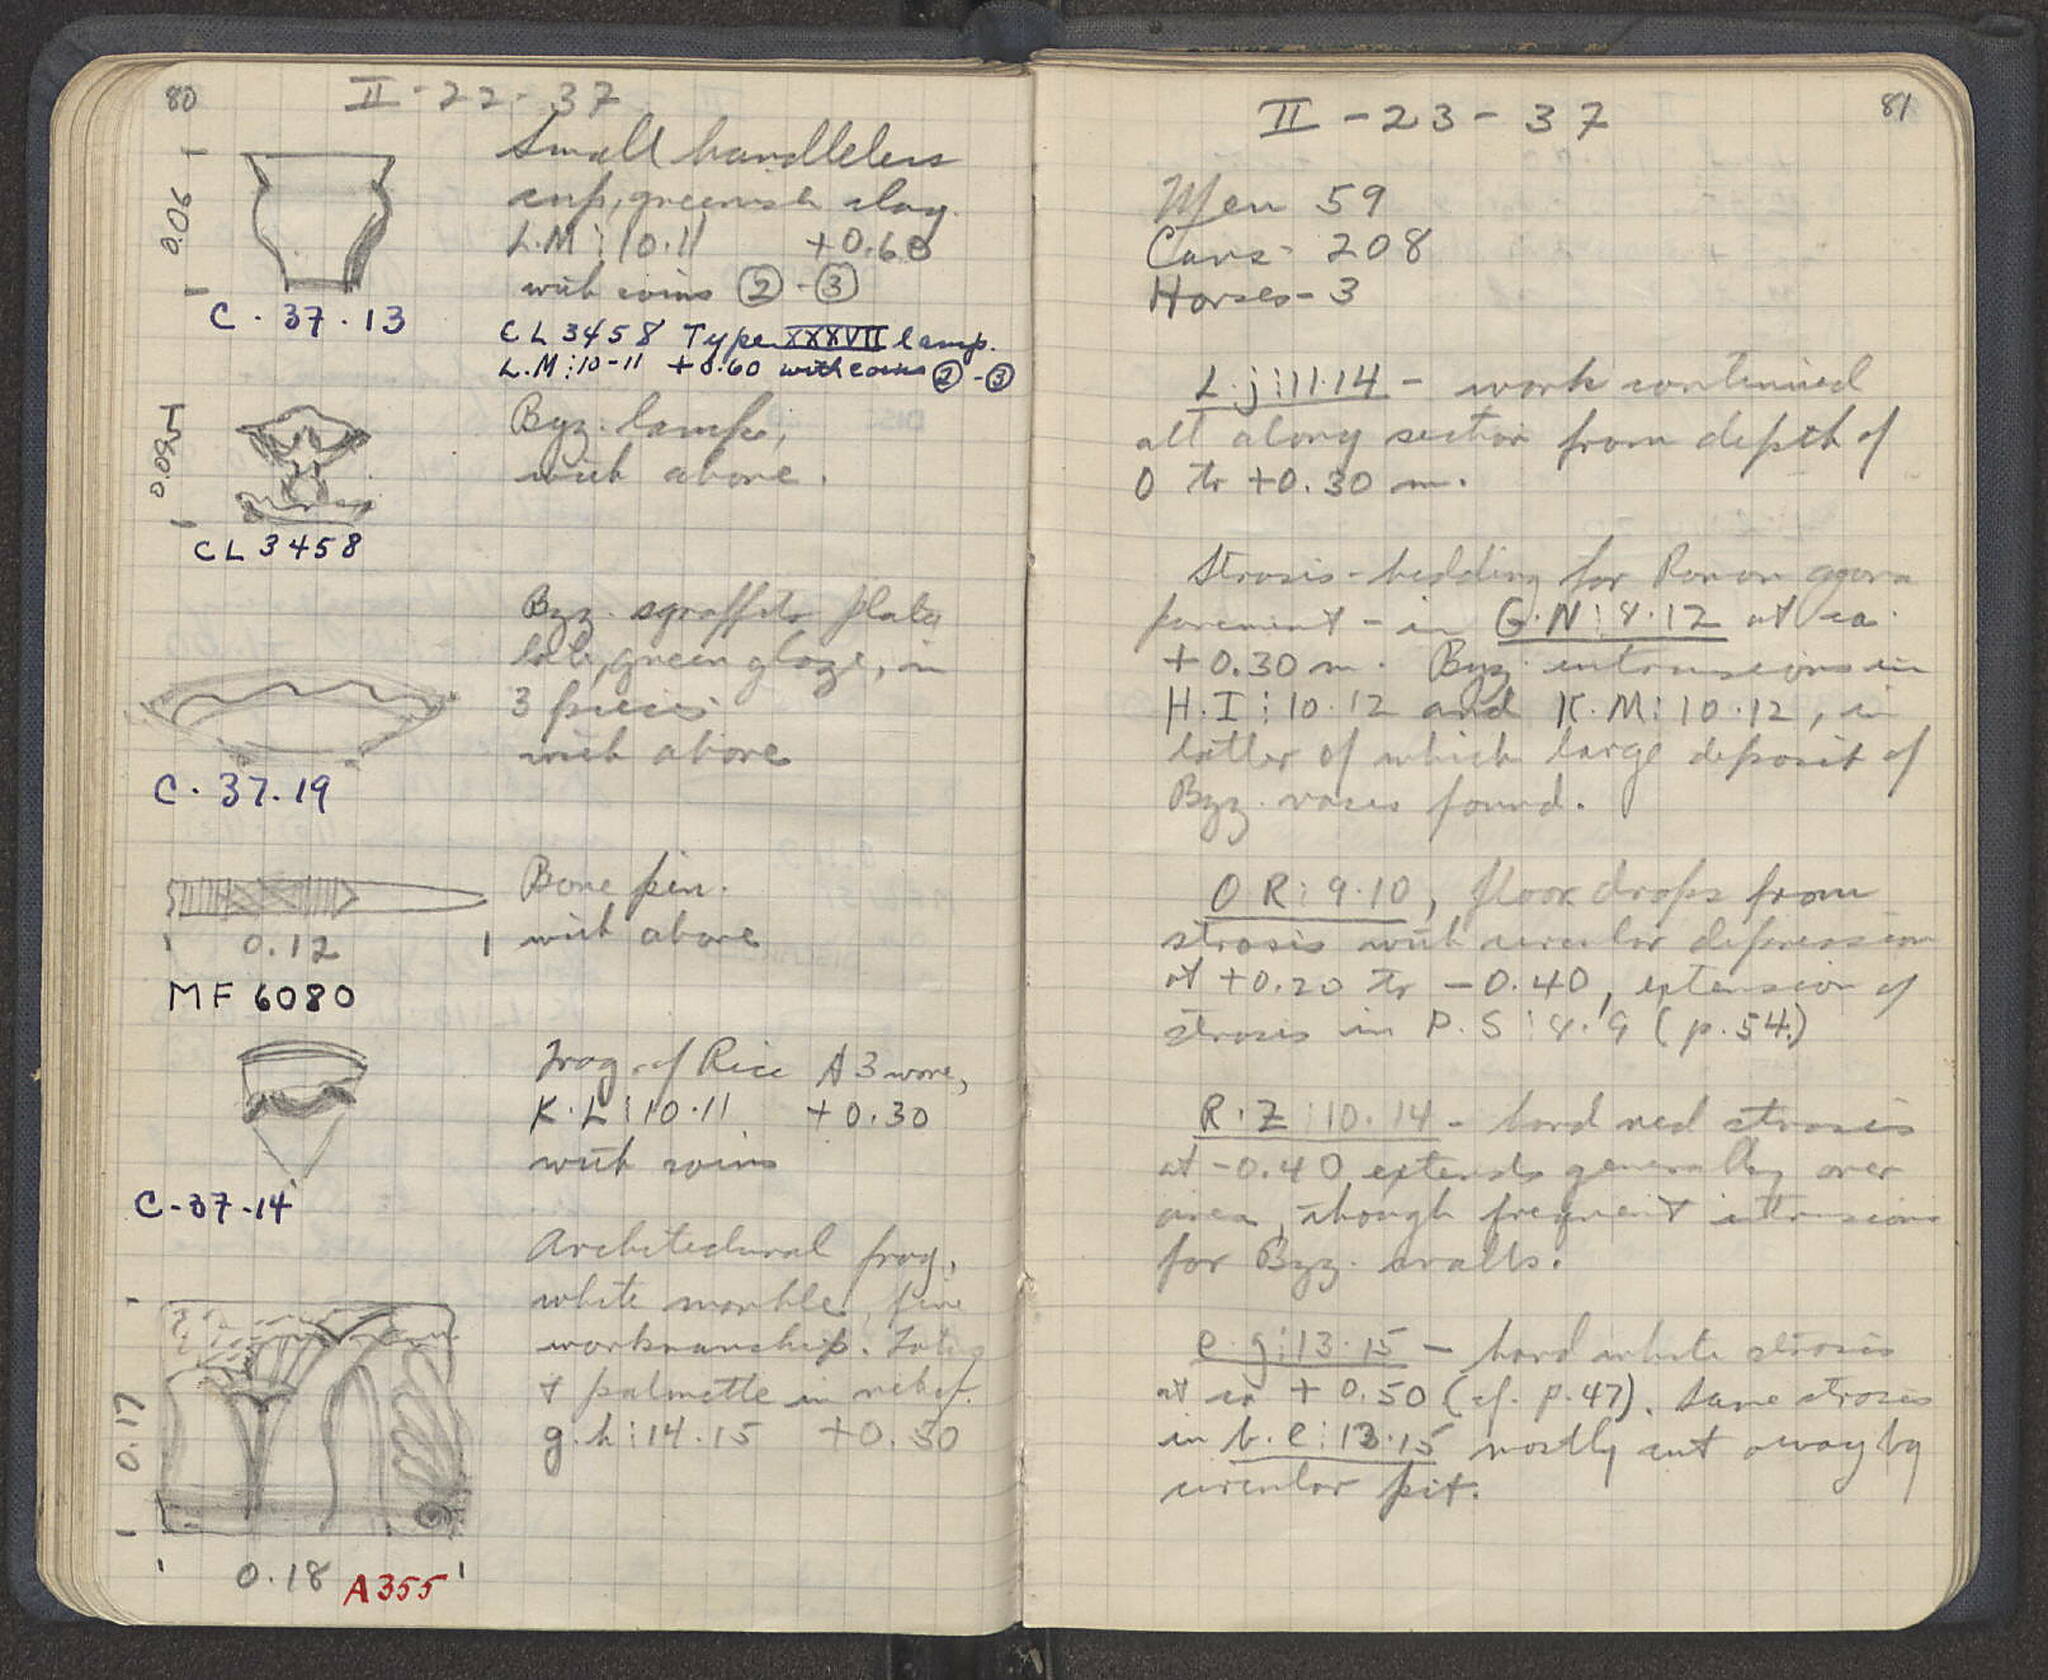 80
II - 22 - 37
0.06
C. 37. 13
Small handleless
cup, greenish clay.
L.M:10.11 +0.60
with coins 2 - 3
CL 3458 Type XXXVII lamp.
L.M:10-11 +0.60 with coins 2 - 3
0.095
CL 3458
Byz. lamp,
with above.
Byz. sgraffito plate
late, green glaze, in
3 pieces
with above
C. 37. 19
Bone pin.
with above
0.12
MF 6080
Frag. of Rice A3 ware,
K.L:10.11 +0.30
with coins
C-37-14
Architectural frag,
white marble, fine
workmanship. Lotus
+ palmette in relief.
g.h:14.15 +0.50
0.17
0.18 A355
81
II - 23 - 37
Men 59
Cars - 208
Horses - 3
L.j:11.14 - work continued
all along section from depth of
0 to +0.30 m.
Strosis - bedding for Roman agora
pavement - in G.N:8.12 at ca.
+0.30 m. Byz. intrusions in
H.I:10.12 and K.M:10.12, in
latter of which large deposit of
Byz. vases found.
O R:9.10, floor drops from
strosis with circular depression
at +0.20 to -0.40, extension of
strosis in P.S:8.9 (p.54.)
R.Z:10.14 - hard red strosis
at -0.40 extends generally over
area, though frequent intrusions
for Byz. walls.
e.g:13.15 - hard white strosis
at ca +0.50 (cf. p.47). Same strosis
in b.e:13.15 mostly cut away by
circular pit.